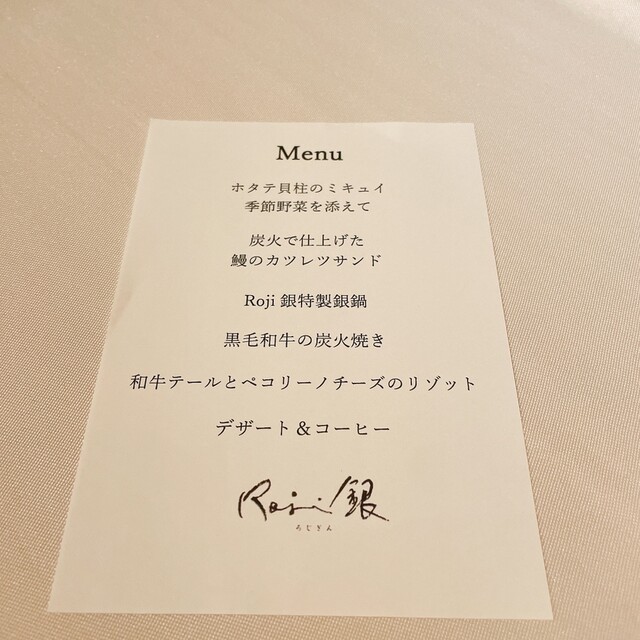 Menu
ホタテ貝柱のミキュイ
季節野菜を添えて
炭火で仕上げた
鰻のカツレツサンド
Roji 銀特製銀鍋
黒毛和牛の炭火焼き
和牛テールとペコリーノチーズのリゾット
デザート＆コーヒー
Roji 銀
ろじぎん